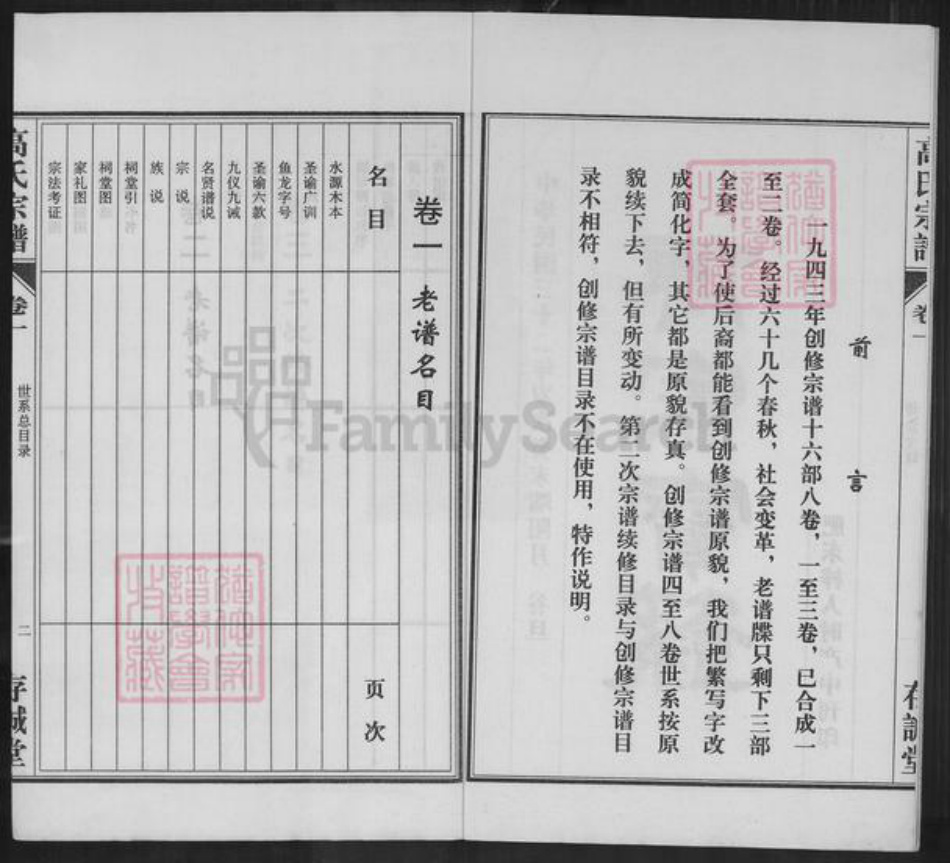 高氏宗谱
卷一
存诚堂
前言
一九四三年创修宗谱十六部八卷，一至三卷，已合成一
至二卷。经过六十几个春秋，社会变革，老谱牒只剩下三部
全套。为了使后裔都能看到创修宗谱原貌，我们把繁写字改
成简化字，其它都是原貌存真。创修宗谱四至八卷世系按原
貌续下去，但有所变动。第二次宗谱续修目录与创修宗谱目
录不相符，创修宗谱目录不在使用，特作说明。
卷一 老谱名目
名目
页次
水源木本
圣谕广训
鱼龙字号
圣谕六款
九仪九诫
名贤谱说
宗说
族说
祠堂引
祠堂图
家礼图
宗法考证
高氏宗谱
卷一
世系总目录
二
存诚堂
FamilySearch